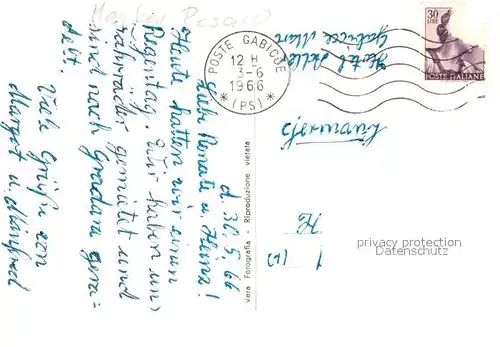 Pesaro
POSTE GABICCE
12 H
3-6
1966
(PS)
30
LIRE
POSTE ITALIANE
Hotel
Gabicce Mare
d. 30.5.66
Liebe Renate u. Heinz!
Heute hatten wir einen
Regentag. Wir haben uns
Fahrräder gemietet und
sind nach Gradara gera-
delt.
Viele Grüße von
Margot u. Manfred
Germany
Vera Fotografia - Riproduzione vietata
privacy protection
Datenschutz